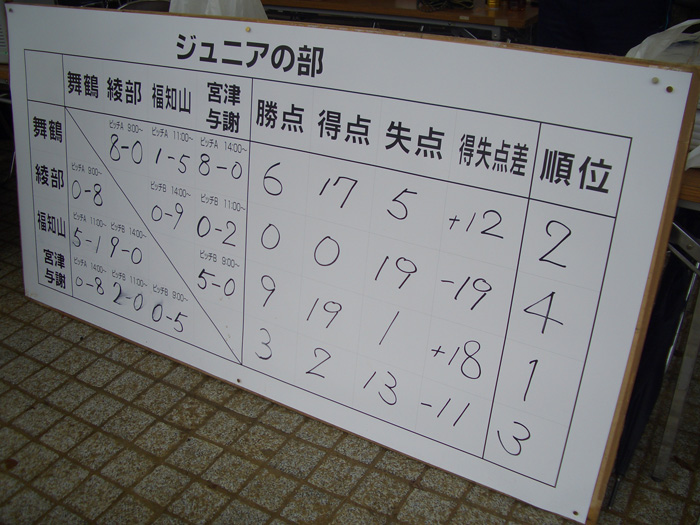 ジュニアの部
舞鶴 綾部 福知山 宮津与謝 勝点 得点 失点 得失点差 順位
舞鶴 ピッチA 9:00~ 8-0 ピッチA 11:00~ 1-5 ピッチA 14:00~ 8-0 6 17 5 +12 2
綾部 ピッチA 9:00~ 0-8 ピッチB 14:00~ 0-9 ピッチB 11:00~ 0-2 0 0 19 -19 4
福知山 ピッチA 11:00~ 5-1 ピッチB 14:00~ 9-0 ピッチB 9:00~ 5-0 9 19 1 +18 1
宮津与謝 ピッチA 14:00~ 0-8 ピッチB 11:00~ 2-0 ピッチB 9:00~ 0-5 3 2 13 -11 3